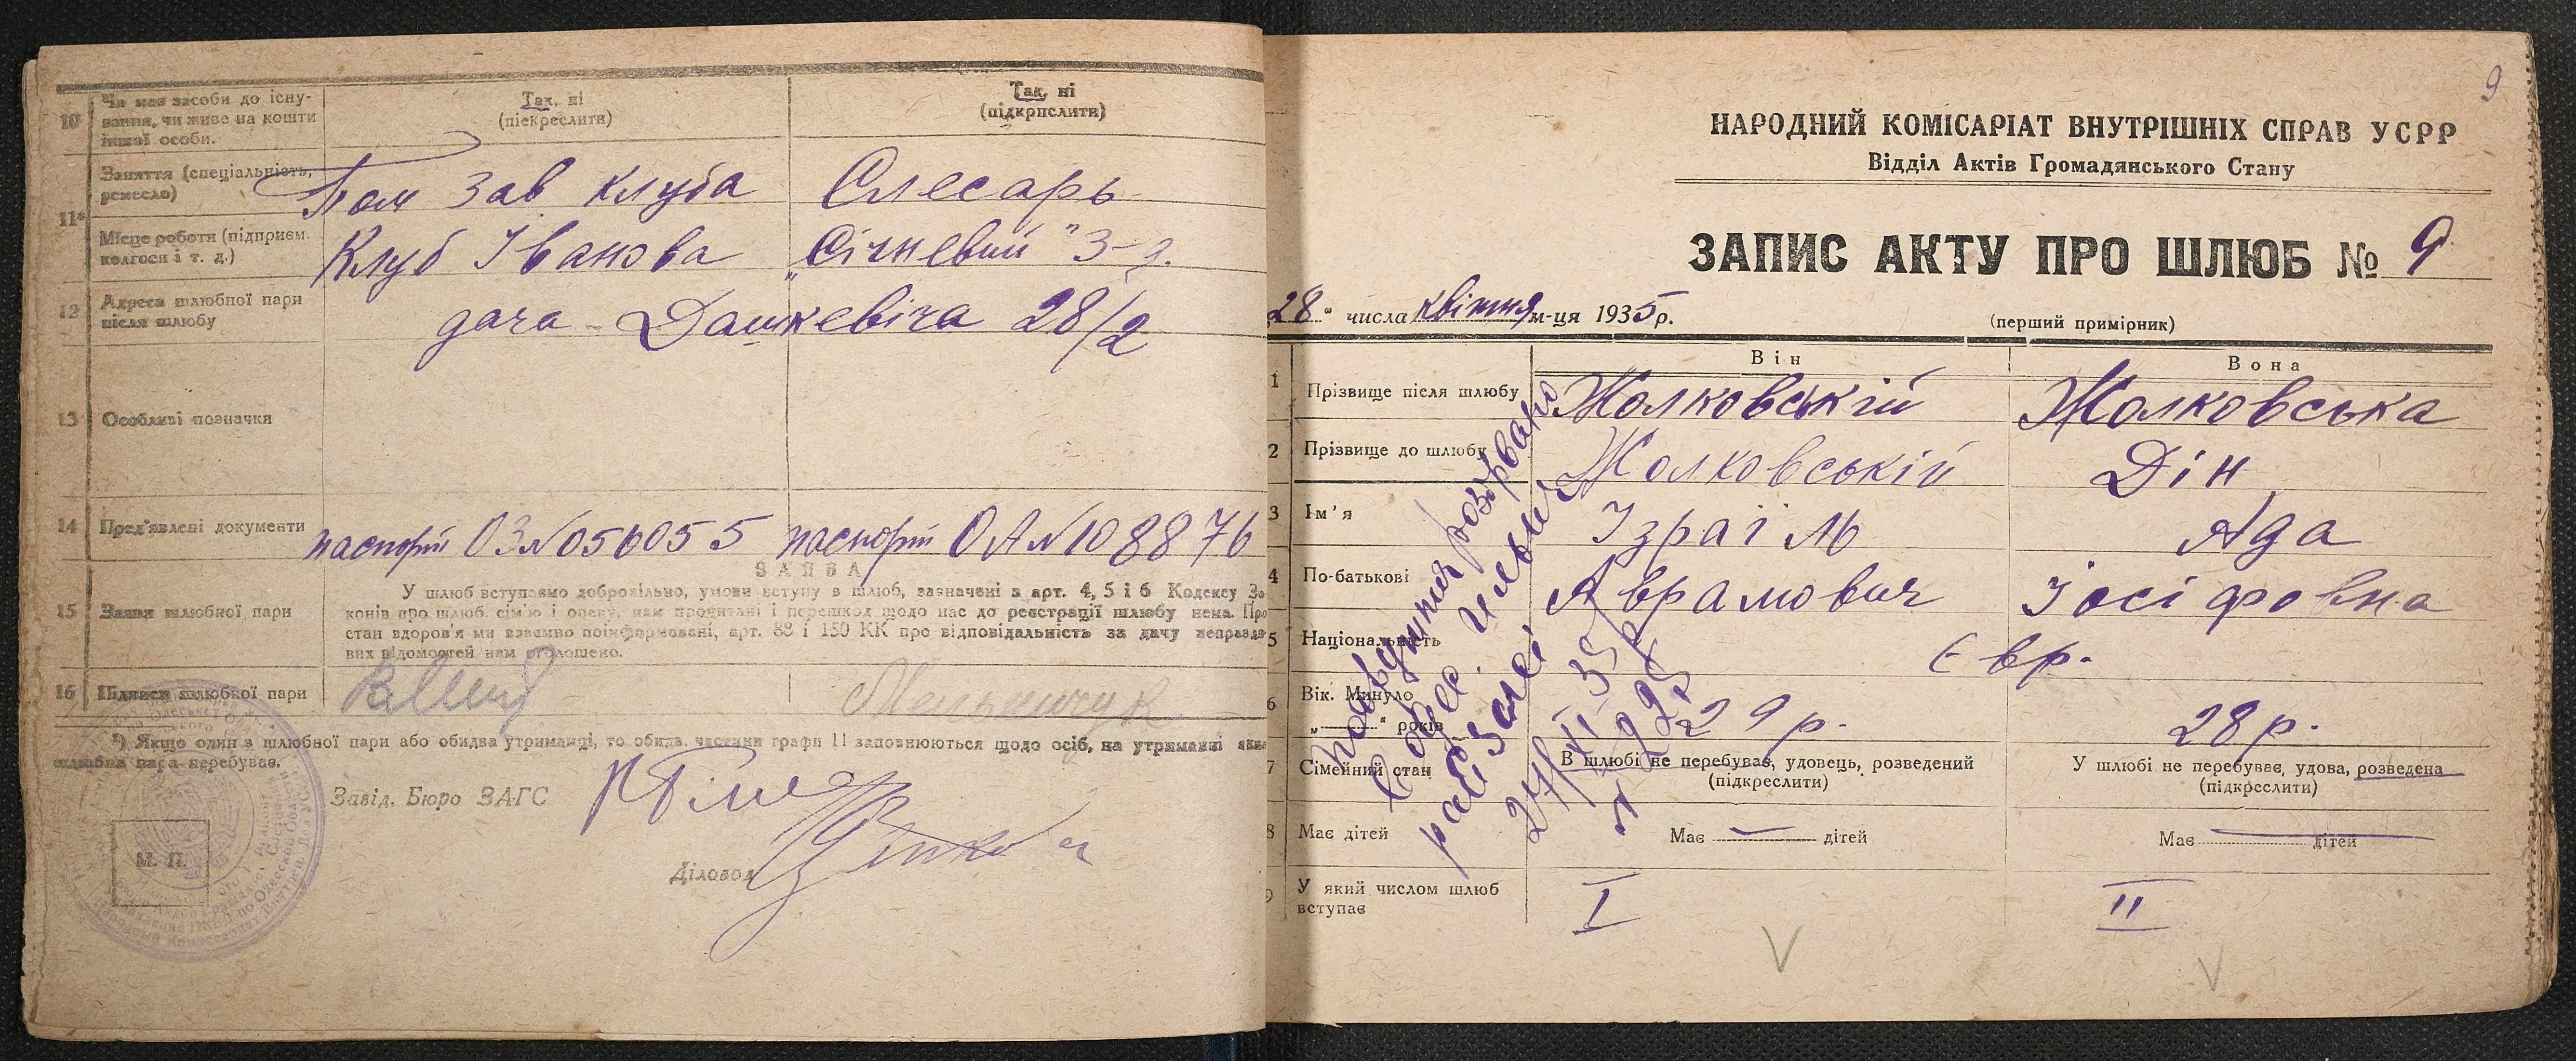 10 Чи має засоби до існу-
вання, чи живе на кошти
іншої особи.
Так, ні
(піекреслити)
Так, ні
(підкрпслити)
11* Заняття (спеціяльність,
ремесло)
Пом зав клуба
Слесарь
Місце роботи (підприєм.
колгосп і т. д.)
Клуб Іванова
„Січневий" З-д.
12 Адреса шлюбної пари
після шлюбу
дача - Дашкевіча 28/2
13 Особливі позначки
14 Пред'явлені документи
паспорт ОЗ № 056055
паспорт ОА № 108876
ЗАЯВА
15 Заява шлюбної пари
У шлюб вступаємо добровільно, умови вступу в шлюб, зазначені в арт. 4, 5 і 6 Кодексу За
конів про шлюб, сім'ю і опеку, нам прочитані і перешкод щодо нас до реєстрації шлюбу нема. Про
стан здоров'я ми взаємно поінформовані, арт. 88 і 150 КК про відповідальність за дачу неправди
вих відомостей нам оголошено.
16 Підписи шлюбної пари
Мельничук
*) Якщо один з шлюбної пари або обидва утриманці, то обидв. частини графи 11 заповнюються щодо осіб, на утриманні яких
шлюбна пара перебуває.
Завід. Бюро ЗАГС
Діловод
М. П.
9
НАРОДНИЙ КОМІСАРІАТ ВНУТРІШНІХ СПРАВ УСРР
Відділ Актів Громадянського Стану
ЗАПИС АКТУ ПРО ШЛЮБ № 9
28 " числа квітня м-ця 1935 р.
(перший примірник)
Він
Вона
1 Прізвище після шлюбу
Жолковській
Жолковська
2 Прізвище до шлюбу
Жолковській
Дін
3 Ім'я
Ізраїль
Ада
4 По-батькові
Аврамович
Іосіфовна
5 Національність
Євр.
6 Вік. Минуло
„ " років
29 р.
28 р.
7 Сімейний стан
В шлюбі не перебував, удовець, розведений
(підкреслити)
У шлюбі не перебуває, удова, розведена
(підкреслити)
8 Має дітей
Має дітей
Має дітей
9 У який числом шлюб
вступає
I
II
розірвано
Ильич
раб Загсі
27/XI-35 р
№ 925